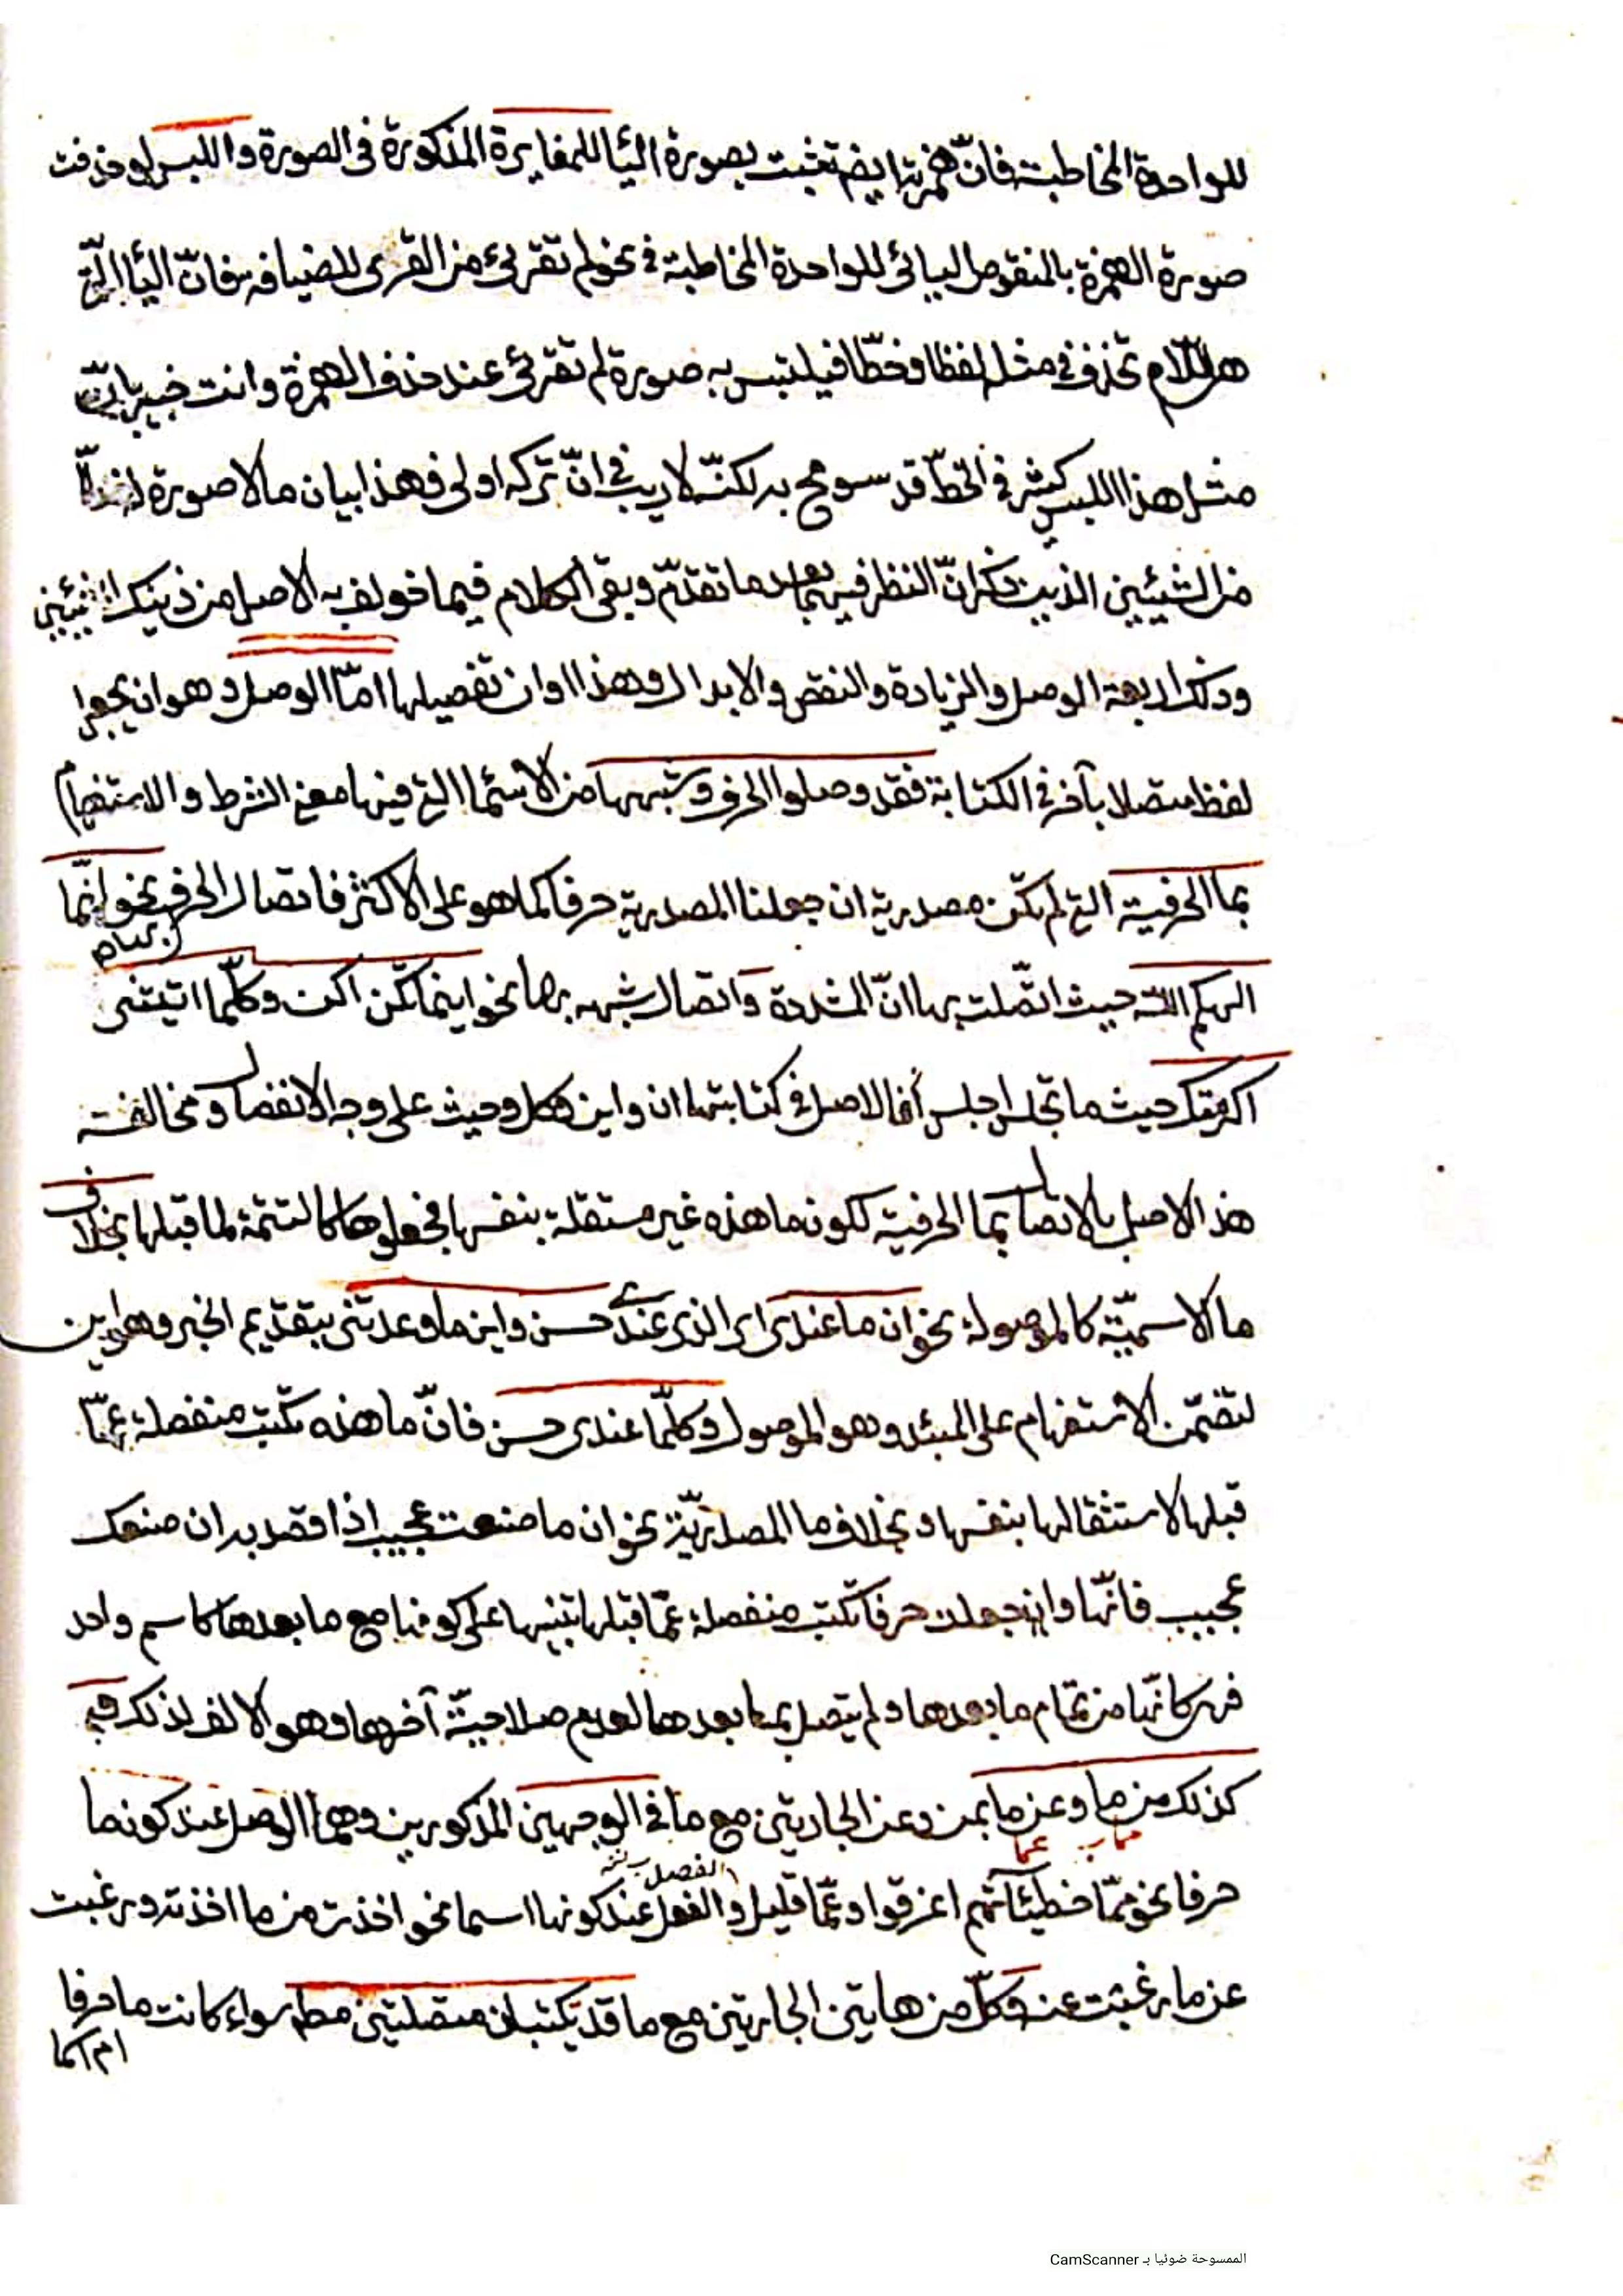 للواحدة المخاطبة فانّ همزتها ايضا تثبت بصورة اليأ للمغايرة المذكورة فى الصورة واللبس لو حذفت
صورة الهمزة بالمنقوص اليائى للواحدة المخاطبة فى نحو لم تقرئ من القرى للضيافة فانّ اليأ التى
هى اللّام تحذف فى مثله لفظا وخطّا فيلتبس به صورة لم تقرئ عند حذف الهمزة وانت خبير بانّ
مثل هذا اللبس كثير فى الخطّ قد سومح به لكنّه لا ريب فى انّ تركه اولى فهذا بيان ما لا صورة له
من الشيئين الذين ذكر انّ النظر فيهما بعد ما تقدّم وبقى الكلام فيما خولف به الاصل من ذينك الشيئين
وذلك اربعة الوصل والزيادة والنقص والابدال وهذا اوان تفصيلها امّا الوصل وهو ان يجعل
لفظ متصلا بآخر فى الكتابة فقد وصلوا الحرف وشبهها من الاسمأ التى فيها معنى الشرط والاستفهام
بما الحرفية التى لم تكن مصدرية ان جعلنا المصدرية حرفا كما هو على الاكثر فاتصال الحرف نحو انّما
الهكم اللّه حيث اتّصلت بها انّ المشددة واتصال شبهه بها نحو اينما تكن اكن وكلّما اتيتنى
اكرمتك حيث ما تجلس اجلس فالاصل فى كتابتها ان واين وكل وحيث على وجه الانفصال ومخالفته
هذا الاصل بالاتصال بما الحرفية لكون ما هذه غير مستقلة بنفسها فجعلوها كالتتمة لما قبلها بخلاف
ما الاسميّة كالموصولة نحو ان ما عندى اى الذى عندى حسن واين ما وعدتنى بتقديم الخبر وهو اين
لتضمّن الاستفهام على المبتدء وهو الموصول وكلّما عندى حسن فانّ ما هذه تكتب منفصلة عمّا
قبلها لاستقلالها بنفسها وبخلاف ما المصدريّة نحو ان ما صنعت عجيب اذا قصد به ان صنعك
عجيب فانّها وان جعلت حرفا تكتب منفصلة عمّا قبلها تنبيها على كونها مع ما بعدها كاسم واحد
فهى كانّها من تمام ما بعدها ولم يتصل بما بعدها لعدم صلاحيّة آخرها وهو الالف لذلك
كذلك من ما وعن ما بمن وعن الجارتين مع ما فى الوجهين المذكورين وهما الوصل عند كون ما
مما عما
حرفا نحو ممّا خطيئآتهم اغرقوا وعمّا قليل والفصل عند كونها اسما نحو اخذت من ما اخذته ورغبت
عن ما رغبت عنه وكلّ من هاتين الجارتين مع ما قد تكتبان متصلتين مطلقا سواء كانت ما حرفا
ام اسما
الممسوحة ضوئيا بـ CamScanner